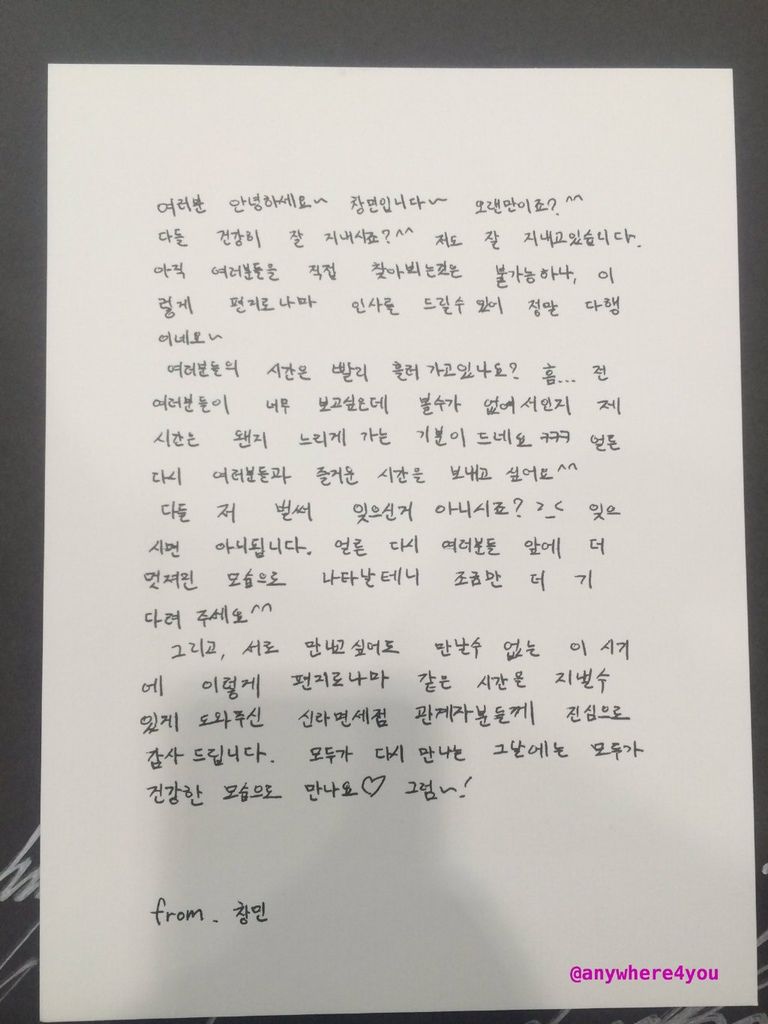 여러분 안녕하세요~ 창민입니다~ 오랜만이죠?^^
다들 건강히 잘 지내시죠?^^ 저도 잘 지내고있습니다.
아직 여러분들을 직접 찾아뵈는것은 불가능하나, 이
렇게 편지로나마 인사를 드릴수 있어 정말 다행
이네요~
여러분들의 시간은 빨리 흘러가고있나요? 흠... 전
여러분들이 너무 보고싶은데 볼수가 없어서인지 제
시간은 왠지 느리게 가는 기분이 드네요 ㅋㅋㅋ 얼른
다시 여러분들과 즐거운 시간을 보내고 싶어요^^
다들 저 벌써 잊으신거 아니시죠? ㅡ_ㅡ 잊으
시면 아니됩니다. 얼른 다시 여러분들 앞에 더
멋져진 모습으로 나타날테니 조금만 더 기
다려 주세요^^
그리고, 서로 만나고싶어도 만날수 없는 이 시기
에 이렇게 편지로나마 같은 시간을 지낼수
있게 도와주신 신라면세점 관계자분들께 진심으로
감사 드립니다. 모두가 다시 만나는 그날에는 모두가
건강한 모습으로 만나요♡ 그럼~!
from. 창민
@anywhere4you